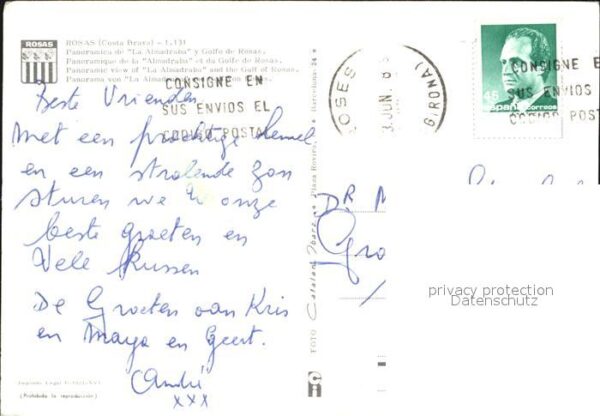 ROSAS
ROSAS (Costa Brava) - L.131
Panorámica de "La Almadraba" y Golfo de Rosas.
Panoramique de la "Almadraba" et du Golfe de Rosas.
Panoramic view of "La Almadraba" and the Gulf of Rosas.
Panorama von "La Almadraba"
CONSIGNE EN
SUS ENVIOS EL
CODIGO POSTAL
Beste Vrienden
Met een prachtige hemel
en een stralende zon
sturen we U onze
beste groeten en
Vele Kussen
De Groeten van Kris
en Maya en Geert.
André
xxx
(Prohibida la reproducción)
FOTO
Barcelona
ROSES
JUN. 8
(GIRONA)
45
España correos
CONSIGNE E
SUS ENVIOS
CODIGO POST
DR M
Gro
privacy protection
Datenschutz